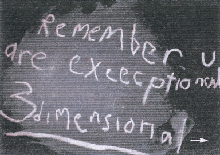 Remember u
are exceeptional
3 dimensional